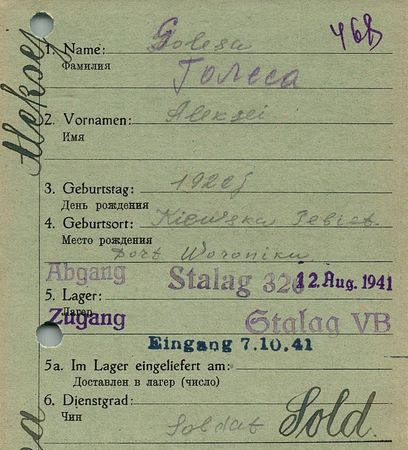 Aleksej
1. Name: Golesa
Фамилия
Голеса
2. Vornamen: Aleksei
Имя
3. Geburtstag: 1920
День рождения
4. Geburtsort:
Место рождения
Dorf Woroniki
Abgang Stalag 326 12. Aug. 1941
5. Lager:
Лагерь
Zugang Stalag VB
Eingang 7.10.41
5a. Im Lager eingeliefert am:
Доставлен в лагерь (число)
6. Dienstgrad: Soldat Sold.
Чин